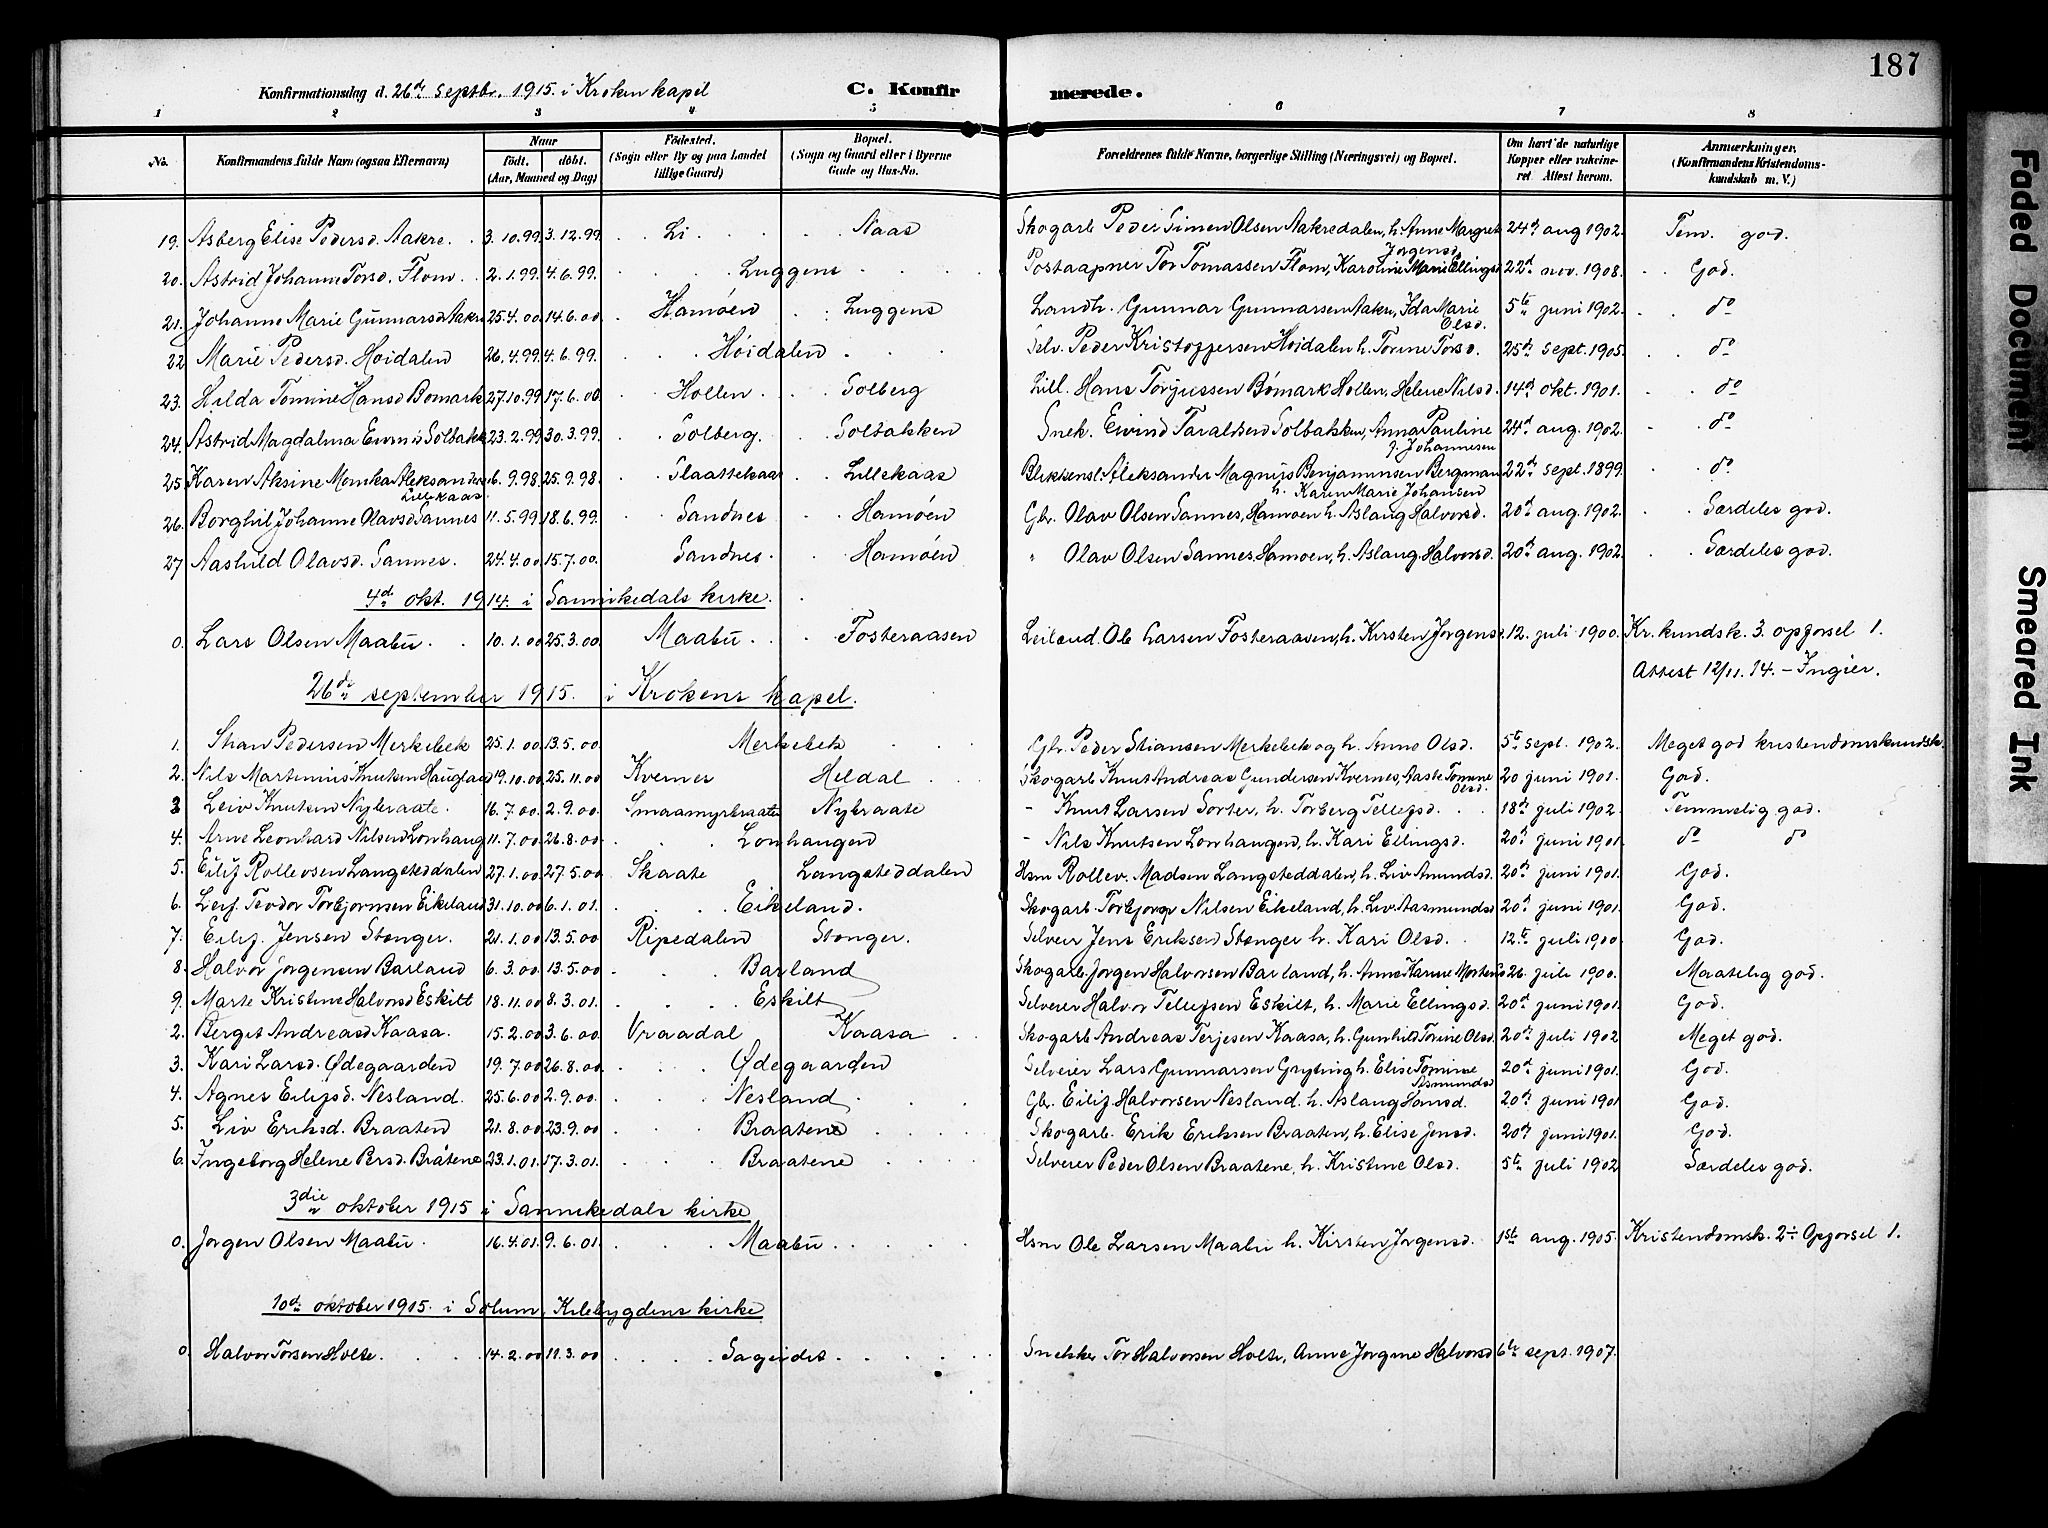 187
Konfirmationsdag d. 26de septbr. 1915 i Kroken kapel C. Konfirmerede.
1 2 3 4 5 6 7 8
No. Konfirmandens fulde Navn (ogsaa Efternavn) Naar født. døbt. (Aar, Maaned og Dag) Fødested. (Sogn eller By og paa Landet tillige Gaard) Bopæl. (Sogn og Gaard eller i Byerne Gade og Hus-No. Forældrenes fulde Navne, borgerlige Stilling (Næringsvei) og Bopæl. Om havt de naturlige Kopper eller vaccineret Attest herom. Anmærkninger. (Konfirmandens Kristendomskundskab m. V.)
19. Asberg Elise Pedersd. Aakre. 3.10.99 3.12.99 Li Naas Skogarb. Peder Simen Olsen Aakredalen, h. Anne Margret Jørgensd. 24de aug 1902. Tem. god.
20. Astrid Johanne Torsd. Flom. 2.1.99. 4.6.99. Luggens Postaapner Tor Tomassen Flom, Karoline Marie Ellingsd 22de nov. 1908. God.
21. Johanne Marie Gunnarsd Aakre 25.4.00 14.6.00 Hamøen Luggens Landh. Gunnar Gunnarsen Aakre, Ida Marie Olsd. 5te juni 1902. do
22 Marie Pedersd. Høidalen 26.4.99 4.6.99. Høidalen Selv. Peder Kristoffersen Høidalen h. Tomine Torsd. 25de sept. 1905. do
23. Hilda Tomine Hansd Bømark 27.10.99 17.6.00 Hollen Solberg Lill. Hans Torjussen Bømark Hollen, Helene Nilsd. 14de okt. 1901. do
24. Astrid Magdalena Eivinds Solbakke 23.2.99 30.3.99. Solberg. Solbakken Snek. Eivind Taraldsen Solbakken, Anna Pauline f. Johannesen 24de aug. 1902. do
25 Karen Aksine Monika Aleksanders Lillekaas. 6.9.98. 25.9.98. Slaattekaas Lillekaas Aleksander Magnus Benjaminsen Bergman h. Karen Marie Johansen 22de sept. 1899. do
26. Borghil Johanne Olavsd Sannes 11.5.99 18.6.99. Sandnes Hamøen Gbr. Olav Olsen Sannes, Hamøen h. Aslaug Halvorsd. 20de aug. 1902. Særdeles god.
27 Aashild Olavsd. Sannes. 24.4.00 15.7.00. Sandnes. Hamøen " Olav Olsen Sannes, Hamøen, h. Aslaug Halvorsd. 20de aug. 1902. Særdeles god.
4de okt. 1914. i Sannikedals kirke.
0. Lars Olsen Maabu. 10.1.00 25.3.00. Maabu Fosteraasen Leiland. Ole Larsen Fosteraasen, h. Kirsten Jørgensd. 12. juli 1900. Kr.kundsk. 3. opførsel 1.
Attest 12/11.14. - Ingier.
26de september 1915. i Krokens kapel.
1. Stian Pedersen Merkebek 25.1.00. 13.5.00. Merkebek Gbr. Peder Stiansen Merkebek og h. Anne Olsd. 5te sept. 1902. Meget god kristendomskundsk.
2. Nils Martinius Knutsen Hauglan 19.10.00. 25.11.00 Kvernes Heldal Skogarb. Knut Andreas Gundersen Kvernes, Aaste Tomine Olsd. 20 juni 1901. God.
3 Leiv Knutsen Nybraate. 16.7.00. 2.9.00. Smaamyrbraaten Nybraate - Knut Larsen Sorter, h. Torberg Tellefsd. 18de juli 1902. Temmelig god.
4. Arne Leonhard Nilsen Lønhaug 11.7.00 26.8.00 Lønhaugen - Nils Knutsen Lønhaugen, h. Kari Ellingsd. 20de juni 1901. do do
5. Eilif Rollevsen Langsteddalen 27.1.00. 27.5.00 Skaate Langsteddalen Hsm Rollev. Madsen Langsteddalen, h. Liv Amundsd. 20de juni 1901. God.
6. Leif Teodor Torbjørnsen Eikeland 31.10.00 6.1.01. Eikeland. Skogarb. Torbjørn Nilsen Eikeland, h. Liv Aasmundsd 20de juni 1901. God.
7. Eilif. Jensen Stønger. 21.1.00 13.5.00 Ripedalen Stønger. Selveier Jens Eriksen Stønger h. Kari Olsd. 12te juli 1900. God.
8. Halvor Jørgensen Barland 6.3.00 13.5.00 Barland Skogarb. Jørgen Halvorsen Barland, h. Anne Karine Mortens 26. juli 1900. Maatelig god.
9. Marte Kristine Halvorsd Eskilt 18.11.00 8.3.01. Eskilt Selveier Halvor Tellefsen Eskilt, h. Marie Ellingsd. 20de juni 1901. God.
2. Berget Andreasd Kaasa. 15.2.00 3.6.00 Vraadal Kaasa Skogarb Andreas Terjesen Kaasa, h. Gunhild Tomine Olsd. 20de juli 1902 Meget god.
3. Kari Larsd. Ødegaarden 19.7.00 26.8.00 Ødegaarden Selveier Lars Gunnarsen Gryting h. Elise Tomine Asmundsd 20de juni 1901. God.
4. Agnes Eilifsd. Nesland. 25.6.00 2.9.00. Nesland Gbr. Eilif Halvorsen Nesland. h. Aslaug Hansd. 20de juni 1901 God.
5. Liv Eriksd. Braaten 21.8.00 23.9.00 Braatene Skogarb. Erik Eriksen Braaten, h. Elise Jensd. 20de juni 1901. God.
6. Ingeborg Helene Persd. Bråtene 23.1.01. 17.3.01. Braatene Selveier Peder Olsen Braatene, h. Kristine Olsd. 5te juli 1902 Særdeles god.
3die oktober 1915 i Sannikedals kirke
0. Jørgen Olsen Maabu. 16.4.01. 9.6.01. Maabu Hsm Ole Larsen Maabu h. Kirsten Jørgensd. 1ste aug. 1905. Kristendomsk. 2÷ Opførsel 1.
10de oktober 1915. i Solum, Kilebygdens kirke
0. Halvor Torsen Holte. 14.2.00 11.3.00 Snekker Tor Halvorsen Holte, Anne Jørgine Halvorsd 6te sept. 1907.
Faded Document
Smeared Ink